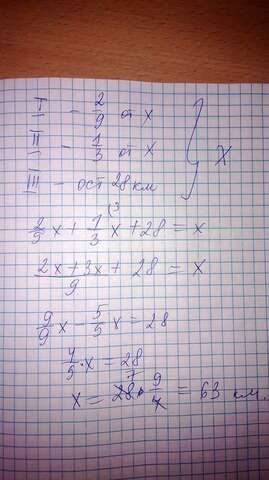 I - 2/9 от x
II - 1/3 от x
III - ост 28 км
} x
2/9 x + 1/3 (3 x + 28 = x
(2x + 3x)/9 + 28 = x
9/9 x - 5/9 x = 28
4/9 · x = 28
x = 28 7 · 9/4 = 63 км.